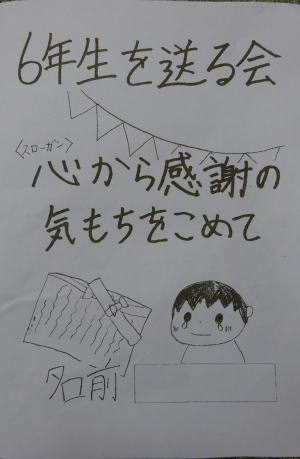 6年生を送る会
〈スローガン〉
心から感謝の
気もちをこめて
名前